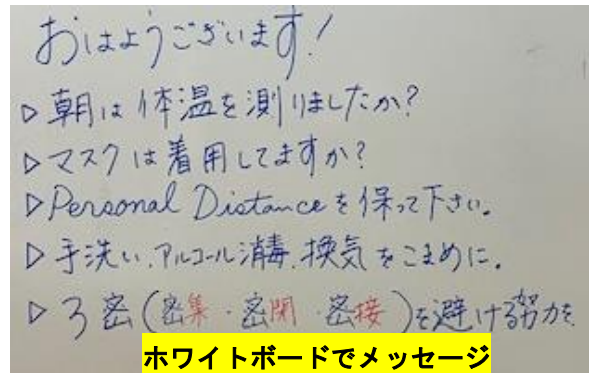 おはようございます!
▷朝は体温を測りましたか?
▷マスクは着用してますか?
▷Personal Distanceを保って下さい。
▷手洗い、アルコール消毒、換気をこまめに。
▷3密(密集・密閉・密接)を避ける努力を
ホワイトボードでメッセージ